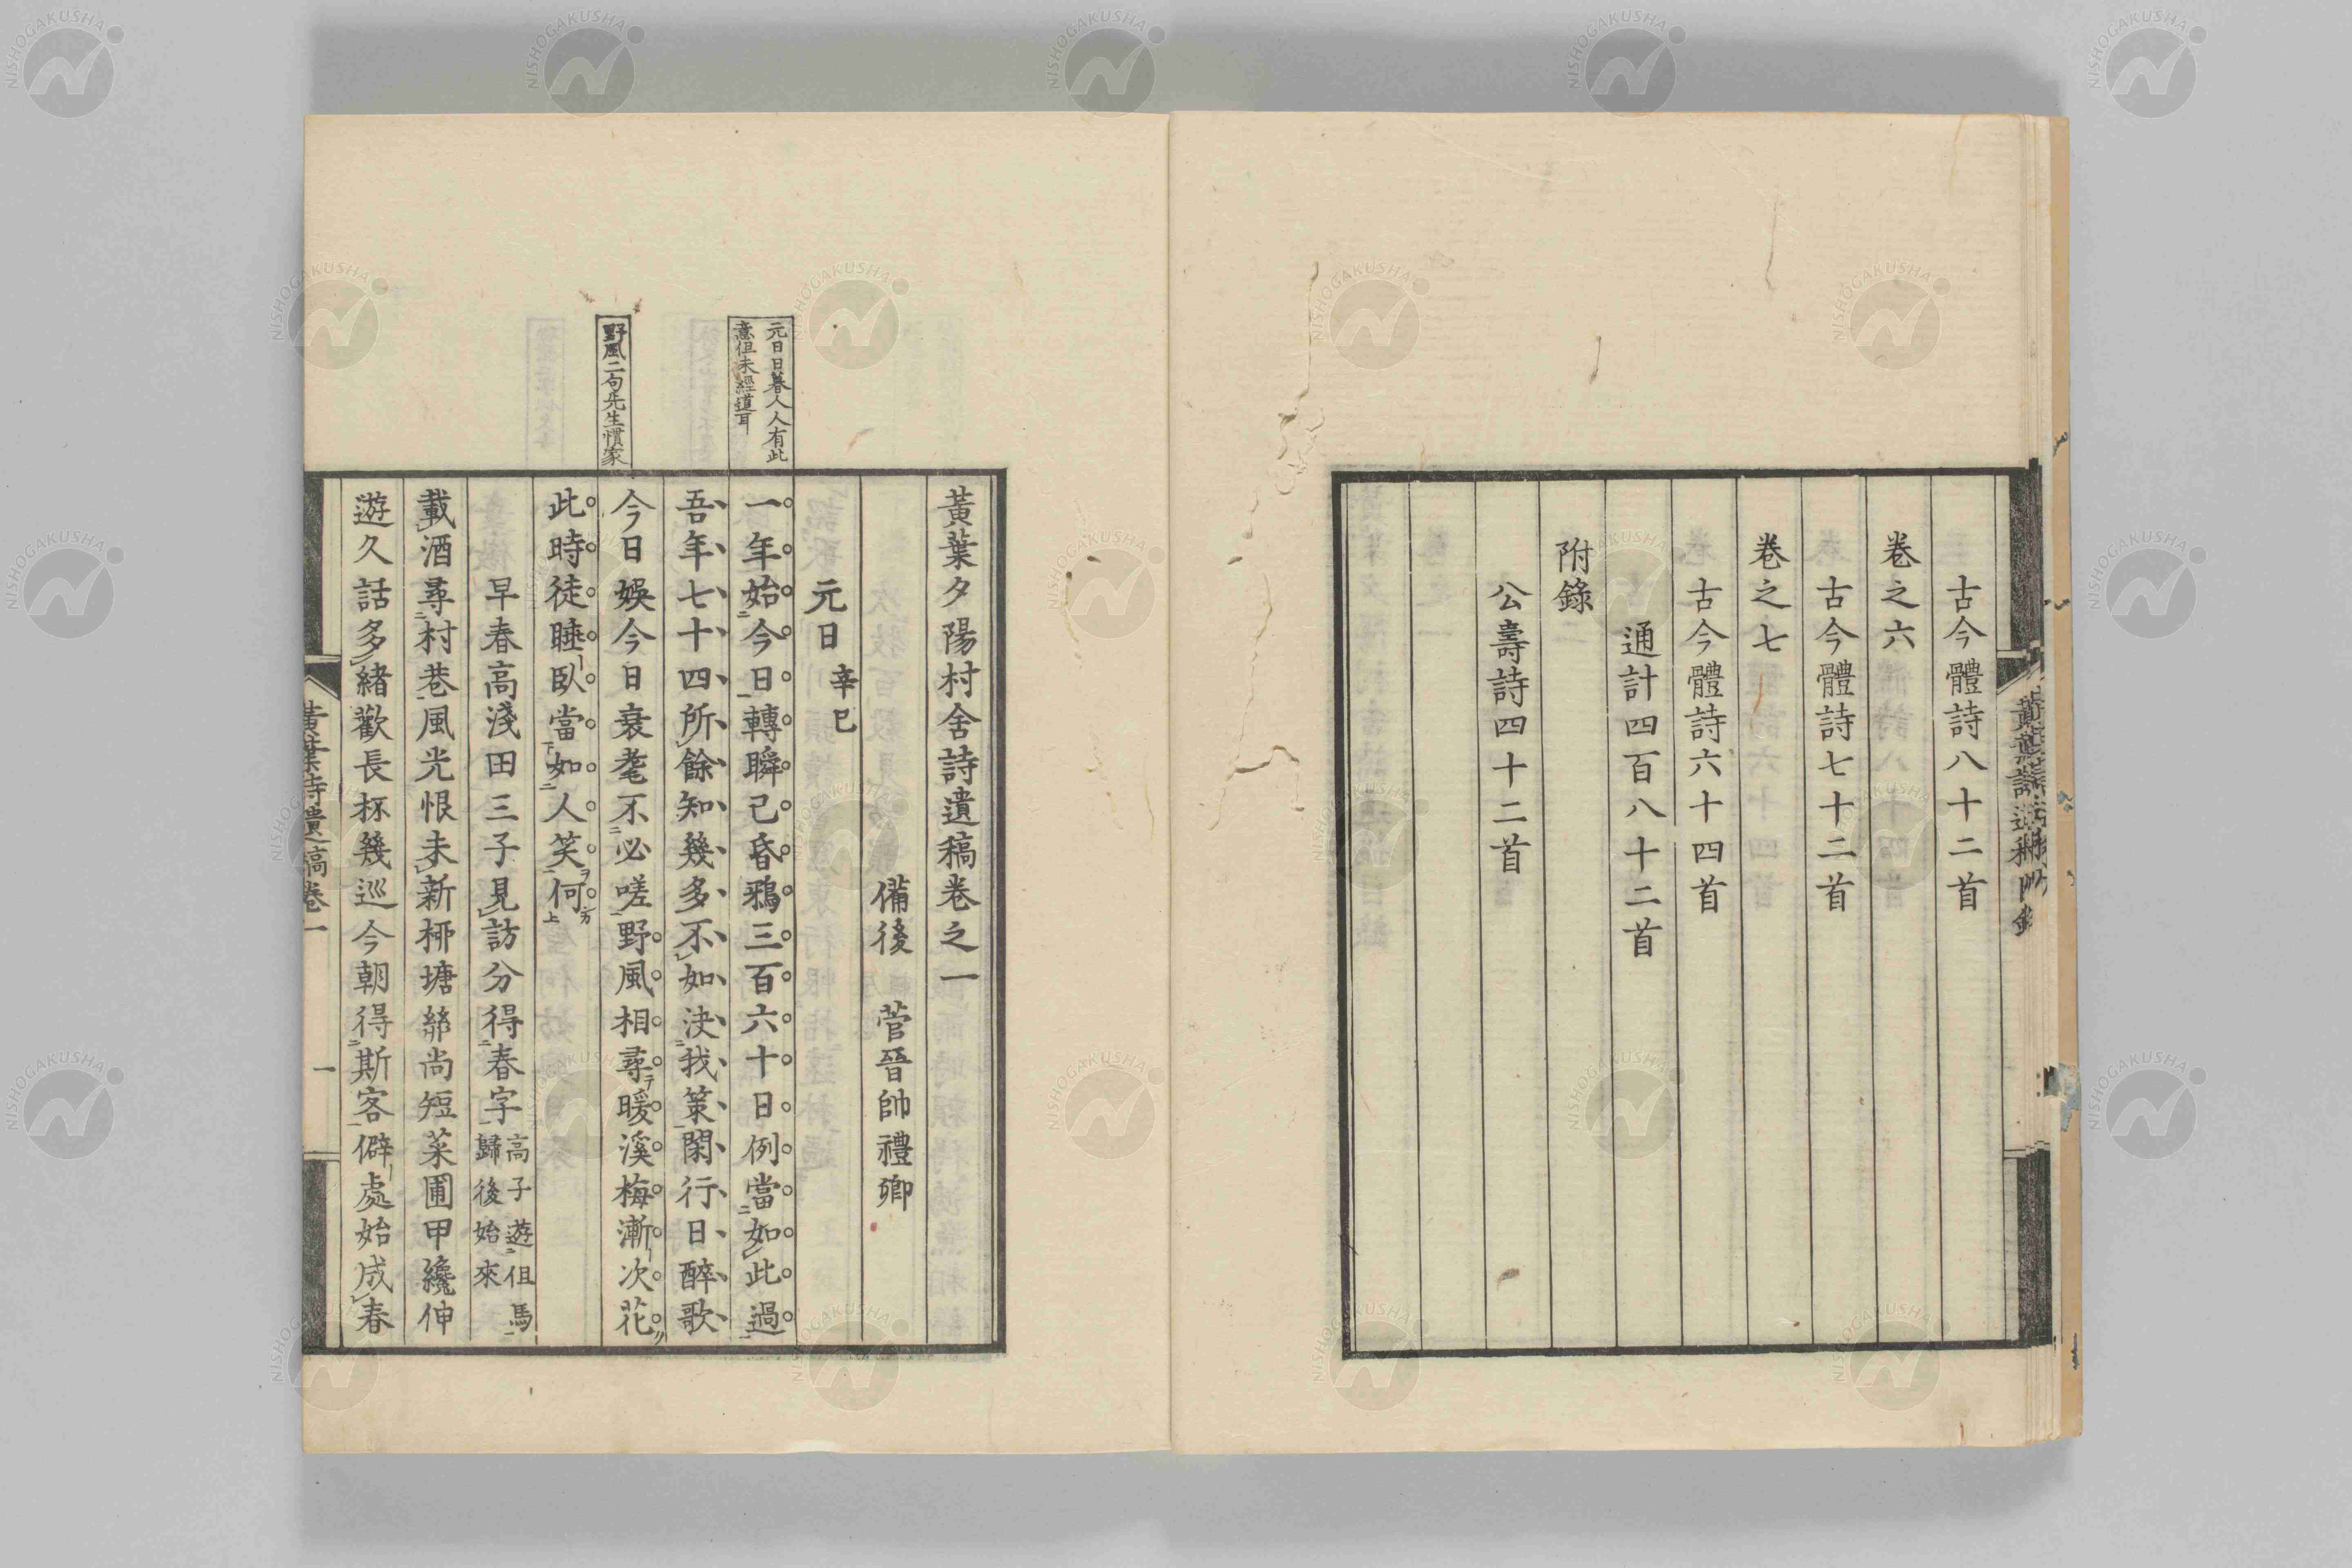 古今體詩八十二首
卷之六
古今體詩七十二首
卷之七
古今體詩六十四首
通計四百八十二首
附錄
公壽詩四十二首
黃葉夕陽村舍詩遺稿卷之一
備後 菅晉帥禮卿
元日 辛巳
元日日暮人人有此
意但未經道耳
一年始今日轉瞬已昏鴉三百六十日例當如此過
吾年七十四所餘知幾多不如決我策閑行日醉歌
野風二句先生慣家
今日娛今日衰耄不必嗟野風相尋暖溪梅漸次花
此時徒睡臥當如人笑何
早春高淺田三子見訪分得春字
高子遊但馬
歸後始來
載酒尋村巷風光恨未新柳塘絲尚短菜圃甲纔伸
遊久話多緒歡長杯幾巡今朝得斯客僻處始成春
黃葉詩遺稿卷一
一
NISHOGAKUSHA